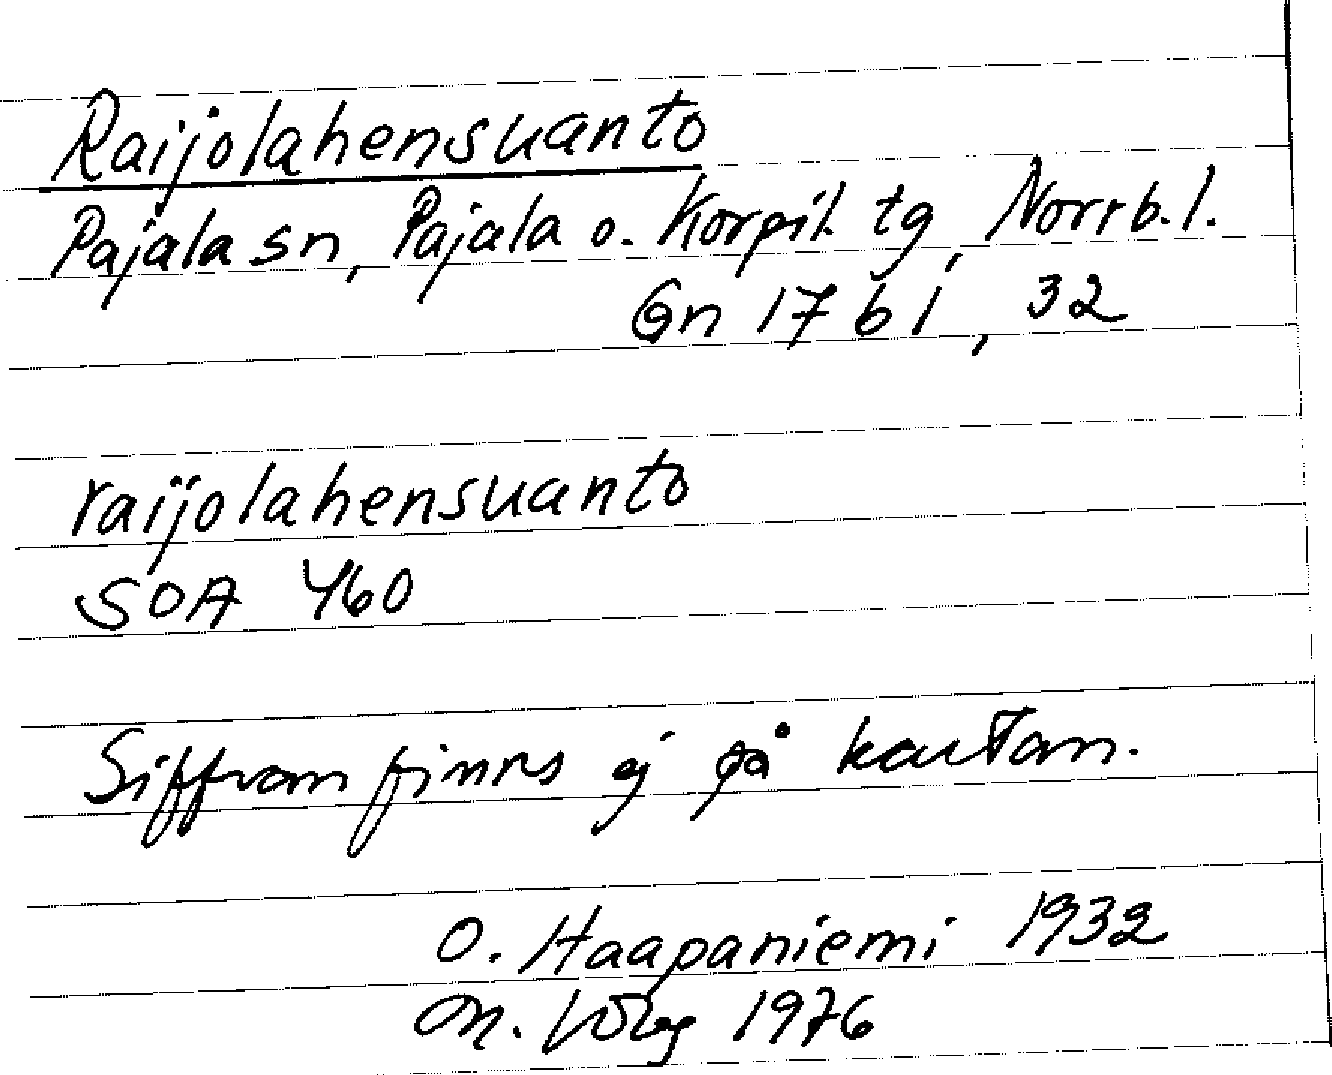 Raijolahensuanto
Pajala sn, Pajala o. Korpil. tg, Norrb. l.
Gn 17 b 1, 32
raijolahensuanto
SOA 460
Siffran finns ej på kartan.
O. Haapaniemi 1932
M. 1976